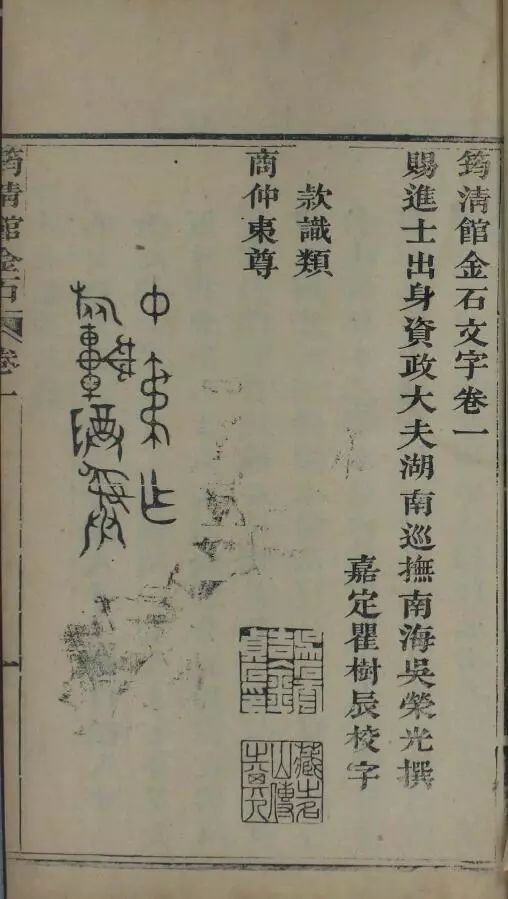 筠清館金石文字卷一
賜進士出身資政大夫湖南巡撫南海吳榮光撰
嘉定瞿樹辰校字
款識類
商仲東尊
筠清館金石
卷一
一